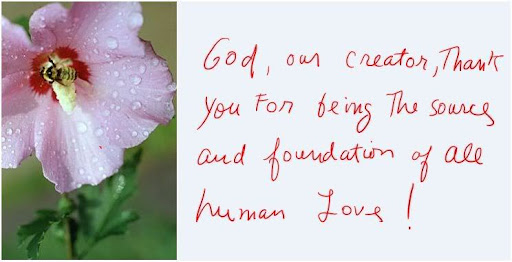 God, our creator, Thank
You For being The source
and foundation of all
human Love!